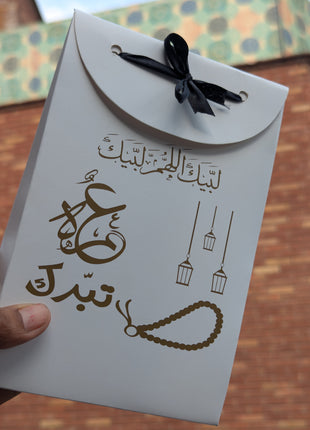 لبّيك اللّهمّ لبّيك
عمره
تبرّك